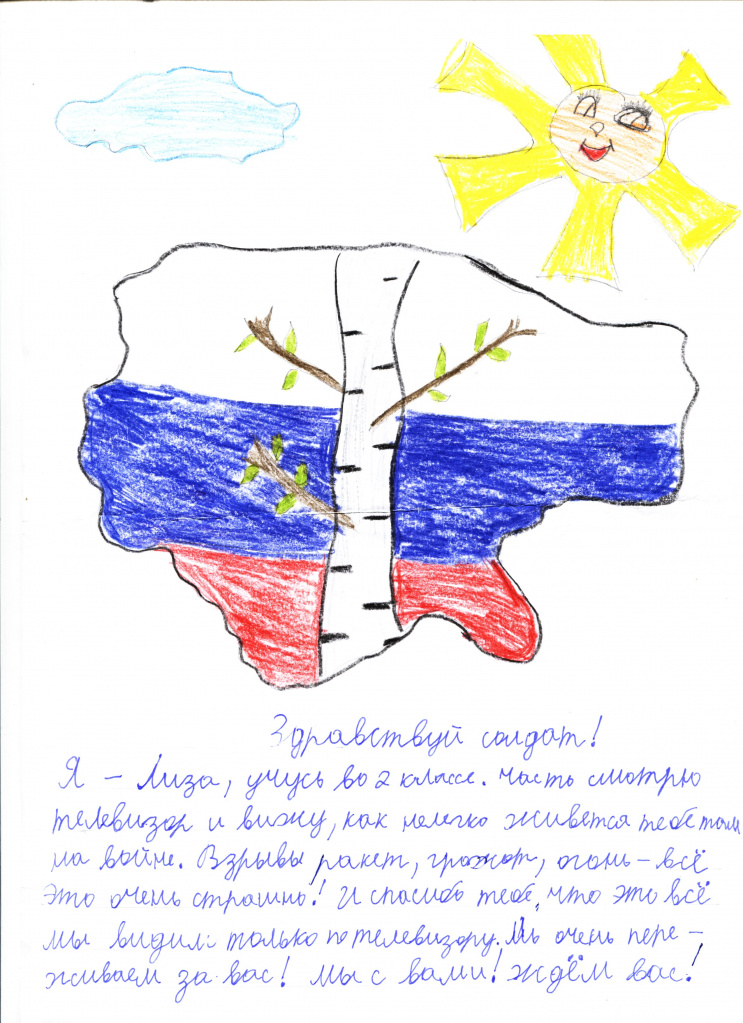 Здравствуй солдат!
Я - Лиза, учусь во 2 классе. Часто смотрю
телевизор и вижу, как нелегко живётся тебе там
на войне. Взрывы ракет, грохот, огонь - всё
это очень страшно! И спасибо тебе, что это всё
мы видим только по телевизору. Мы очень пере-
живаем за вас! Мы с вами! Ждём вас!